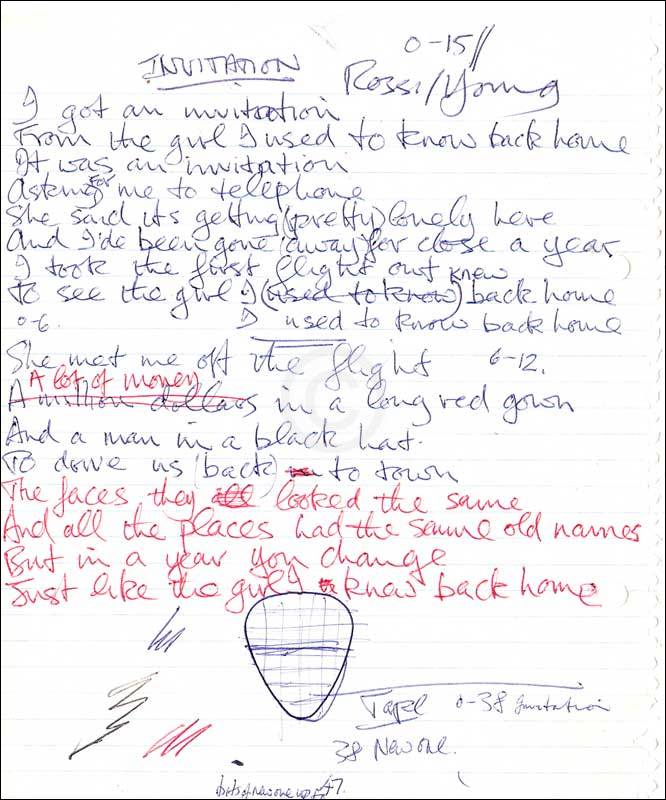 0-15//
INVITATION
Rossi/Young
I got an invitation
From the girl I used to know back home
It was an invitation
Asking for me to telephone
She said its getting (pretty) lonely here
And I'de been gone (away) for close a year
I took the first flight out
knew
To see the girl I (used to know) back home
0-6.
I used to know back home
She met me off the flight
6-12.
A lot of money
A million dollars in a long red gown
And a man in a black hat.
To drive us (back) to town
The faces they all looked the same
And all the places had the same old names
But in a year you change
Just like the girl I knew back home
Tape 0-38 Invitation
38 New one.
©